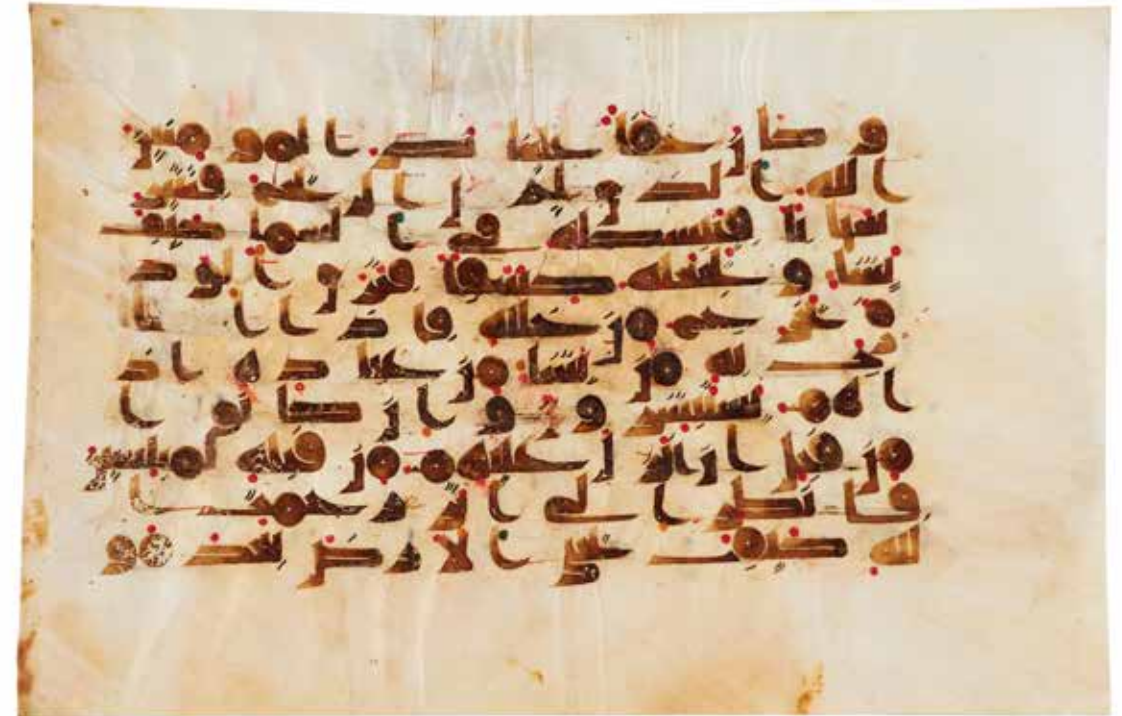 وكان حقا علينا نصر المومنين
الله الذي يرسل الريح فتثير
سحابا فيبسطه في السما كيف
يشا ويجعله كسفا فترى الود
ق يخرج من خلله فاذا ا
صاب به من يشا من عباده اذ
ا هم يستبشرون وان كانوا
من قبل ان ينزل عليهم من قبله لمبلسين
فانظر الى اثر رحمت ا
لله كيف يحي الارض بعد مو